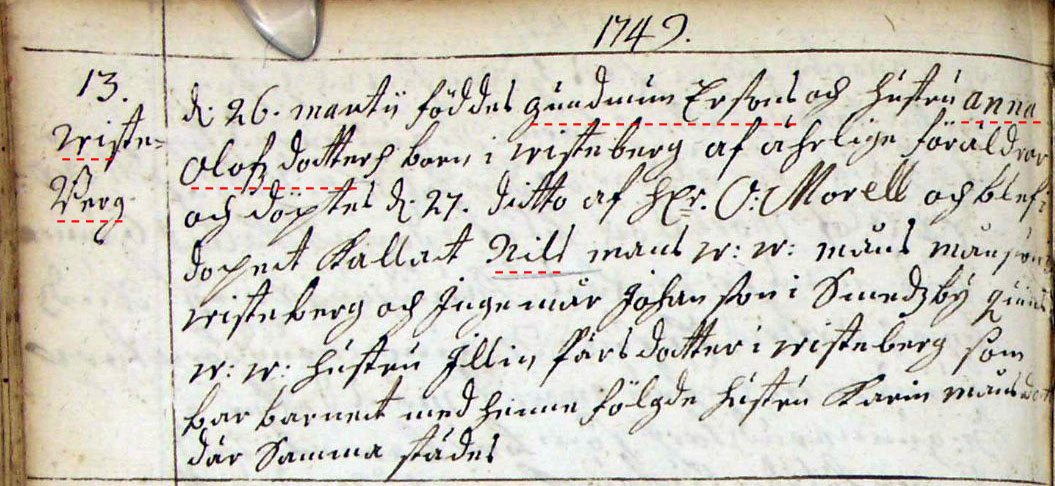 1749.
13.
wiste=
Berg
d: 26. martii föddes gudmun Ersons och hustru anna
Olofz dotters barn i wisteberg af ährlige föräldrar
och döptes d: 27. ditto af Hr. O: Morell och blef i
dopent kallat Nils mans w: w: måns månson i
wisteberg och Ingemar Johanson i Smedzby quins
w: w: hustru Illin Pärs dotter i wisteberg som
bar barnet med henne fölgde hustru Karin måns dot
där samma städes